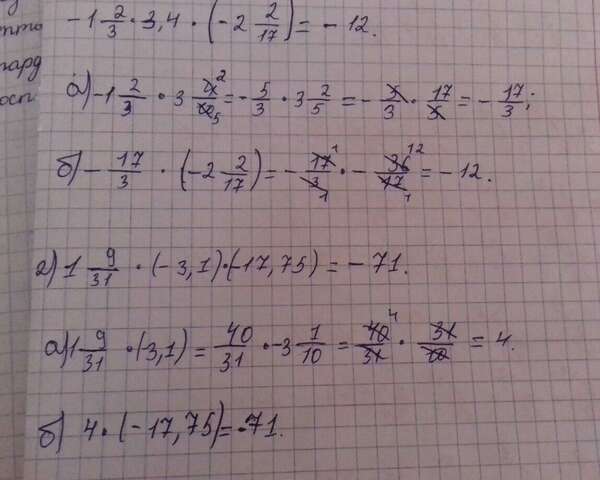 -1 2/3 · 3,4 · (-2 2/17) = -12.
а) -1 2/3 · 3 4²/10₅ = -5/3 · 3 2/5 = -5/3 · 17/5 = -17/3;
б) -17/3 · (-2 2/17) = -17¹/3₁ · -36¹²/17₁ = -12.
г) 1 9/31 · (-3,1) · (-17,75) = -71.
а) 1 9/31 · (-3,1) = 40/31 · -3 1/10 = 40⁴/31 · 31/10 = 4.
б) 4 · (-17,75) = -71.